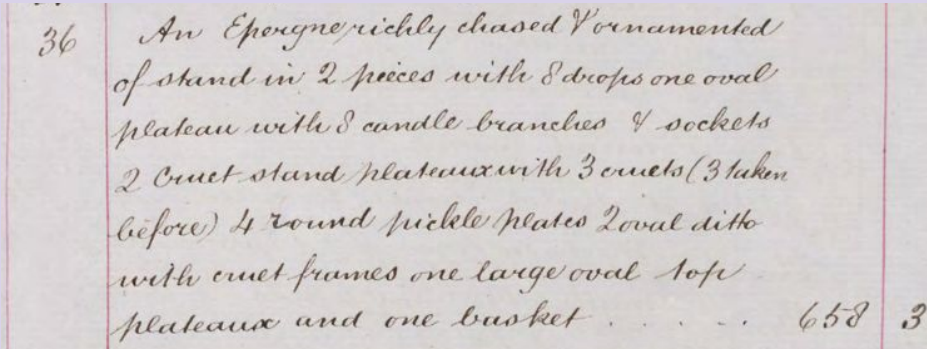 36 An Epergne richly chased & ornamented
of stand in 2 pieces with 8 drops one oval
plateau with 8 candle branches & sockets
2 Cruet stand plateaux with 3 cruets (3 taken
before) 4 round pickle plates 2 oval ditto
with cruet frames one large oval top
plateaux and one basket . . . . . 658 3